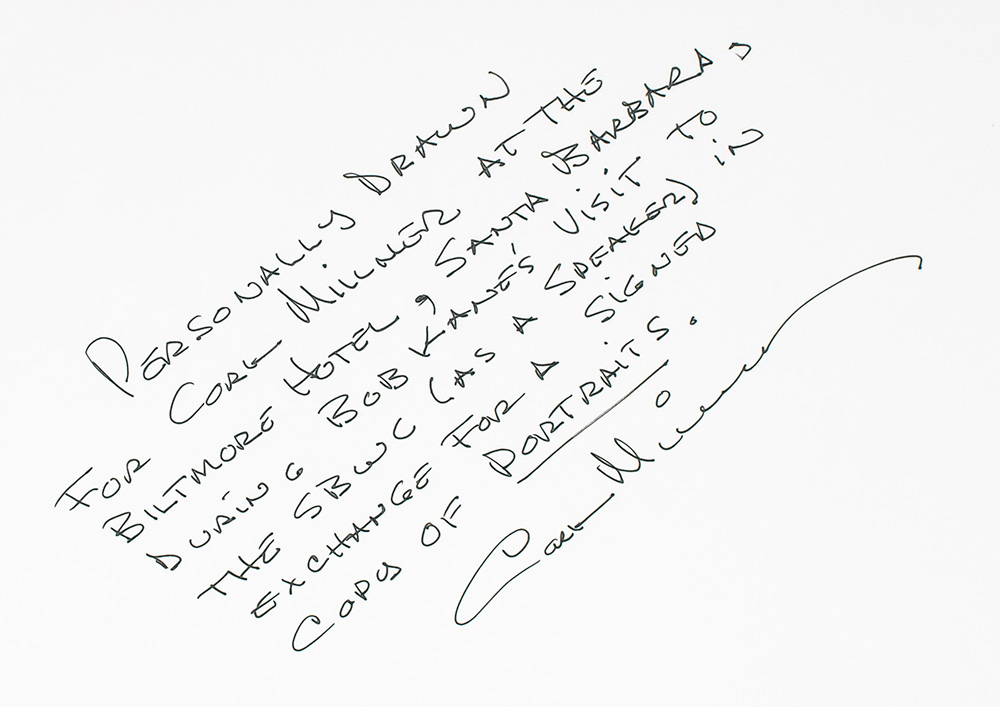 PERSONALLY DRAWN
FOR CORK MILNER AT THE
BILTMORE HOTEL, SANTA BARBARA,
DURING BOB KANE'S VISIT TO
THE SBWC (AS A SPEAKER) IN
EXCHANGE FOR A SIGNED
COPY OF PORTRAITS.
Cork Milner